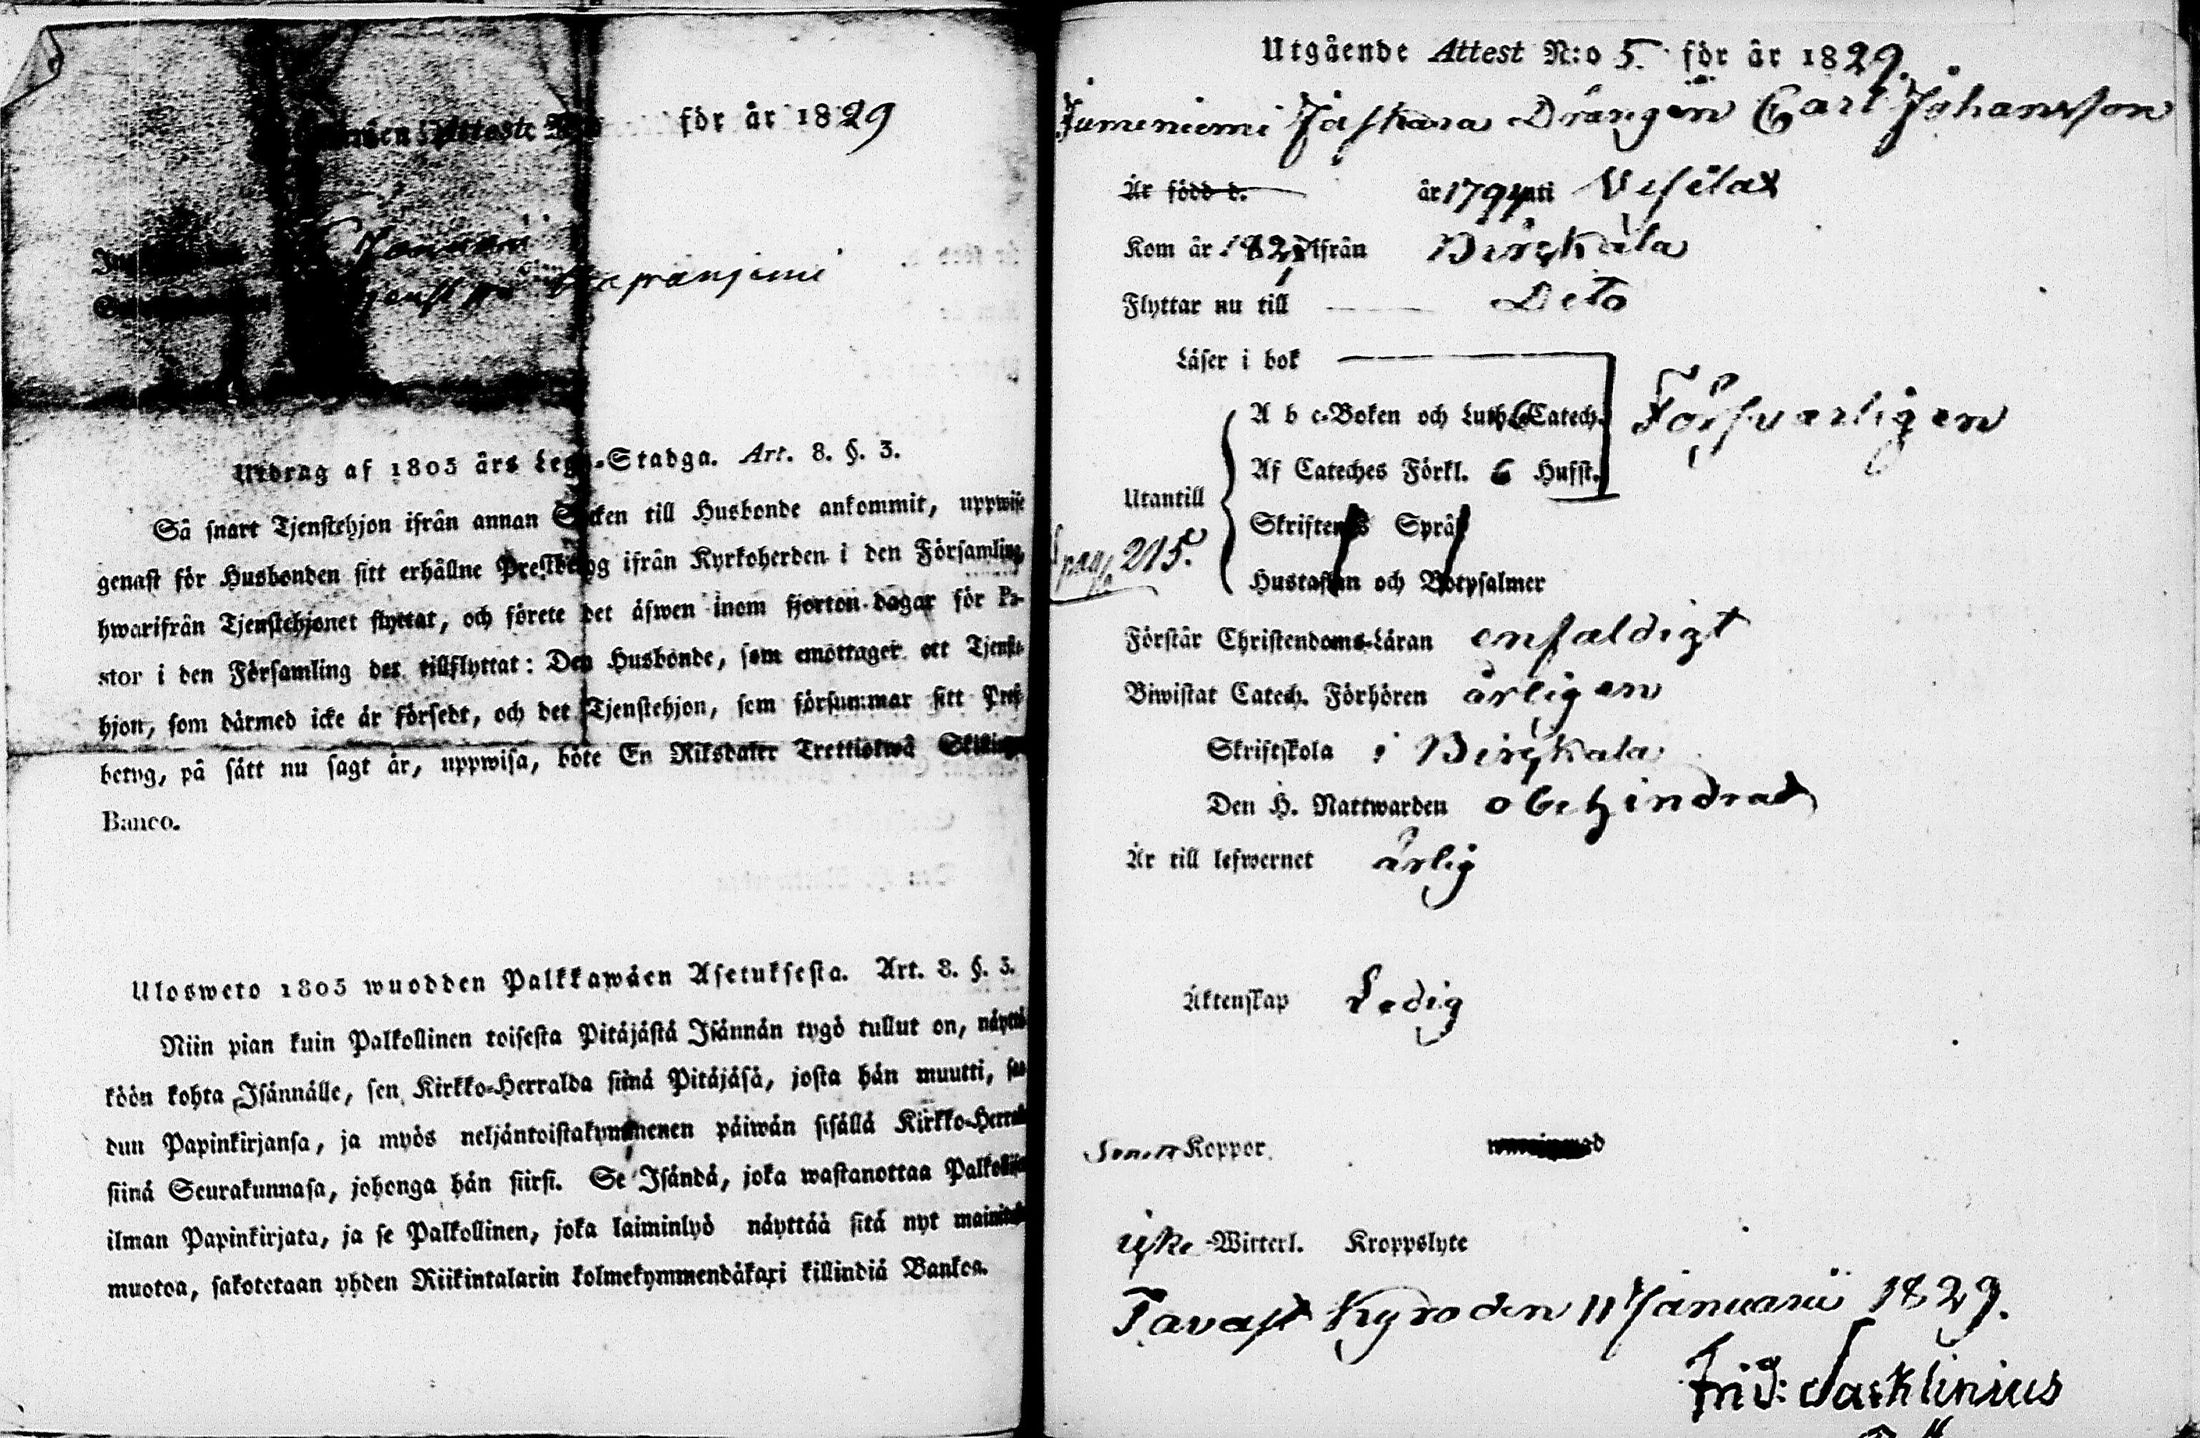 för år 1829
Utdrag af 1805 års Lego-Stadga. Art. 8. §. 3.
Så snart Tjenstehjon ifrån annan Socken till Husbonde ankommit, uppwise
genast för Husbonden sitt erhållne Prestbetyg ifrån Kyrkoherden i den Församling,
hwarifrån Tjenstehjonet flyttat, och förete det äfwen inom fjorton dagar för Pa-
stor i den Församling det tillflyttat: Den Husbonde, som emottager ett Tjenste-
hjon, som därmed icke är försedt, och det Tjenstehjon, som försummar sitt Prest-
betyg, på sätt nu sagt är, uppwisa, böte En Riksdaler Trettiotwå Skillingar
Banco.
Ulosweto 1805 wuodden Palkkawäen Asetuksesta. Art. 8. §. 3.
Niin pian kuin Palkollinen toisesta Pitäjästä Isännän tygö tullut on, näyttä-
köön kohta Isännälle, sen Kirkko-Herralda siinä Pitäjäsä, josta hän muutti, saa-
dun Papinkirjansa, ja myös neljäntoistakymmenen päiwän sisällä Kirkko-Herralle
siinä Seurakunnasa, johonga hän siirsi. Se Isändä, joka wastanottaa Palkollisen
ilman Papinkirjata, ja se Palkollinen, joka laiminlyö näyttää sitä nyt mainitulla
muotoa, sakotetaan yhden Riikintalarin kolmekymmendäkaxi killindiä Bankoa.
Utgående Attest N:o 5. för år 1829.
Jumeniemi Jaskara Drängen Carl Johansson
Är född d. år 1794 uti Vesilax
Kom år ifrån Birckala
Flyttar nu till Dito
Läser i bok
A b c-Boken och Luth. Catech.
Försvarligen
Af Cateches Förkl. 6 Husst.
Utantill
Skriftenes Språk
pag. 215.
Hustaflan och Botpsalmer
Förstår Christendoms-Läran enfaldigt
Biwistat Catech. Förhören årligen
Skriftskola i Birckala
Den H. Nattwarden obehindrad
Är till lefwernet ärlig
Äktenskap Ledig
Koppor
-Witterl. Kroppslyte
Tavast Kyro den 11 Januarii 1829.
Frid: Sacklinius